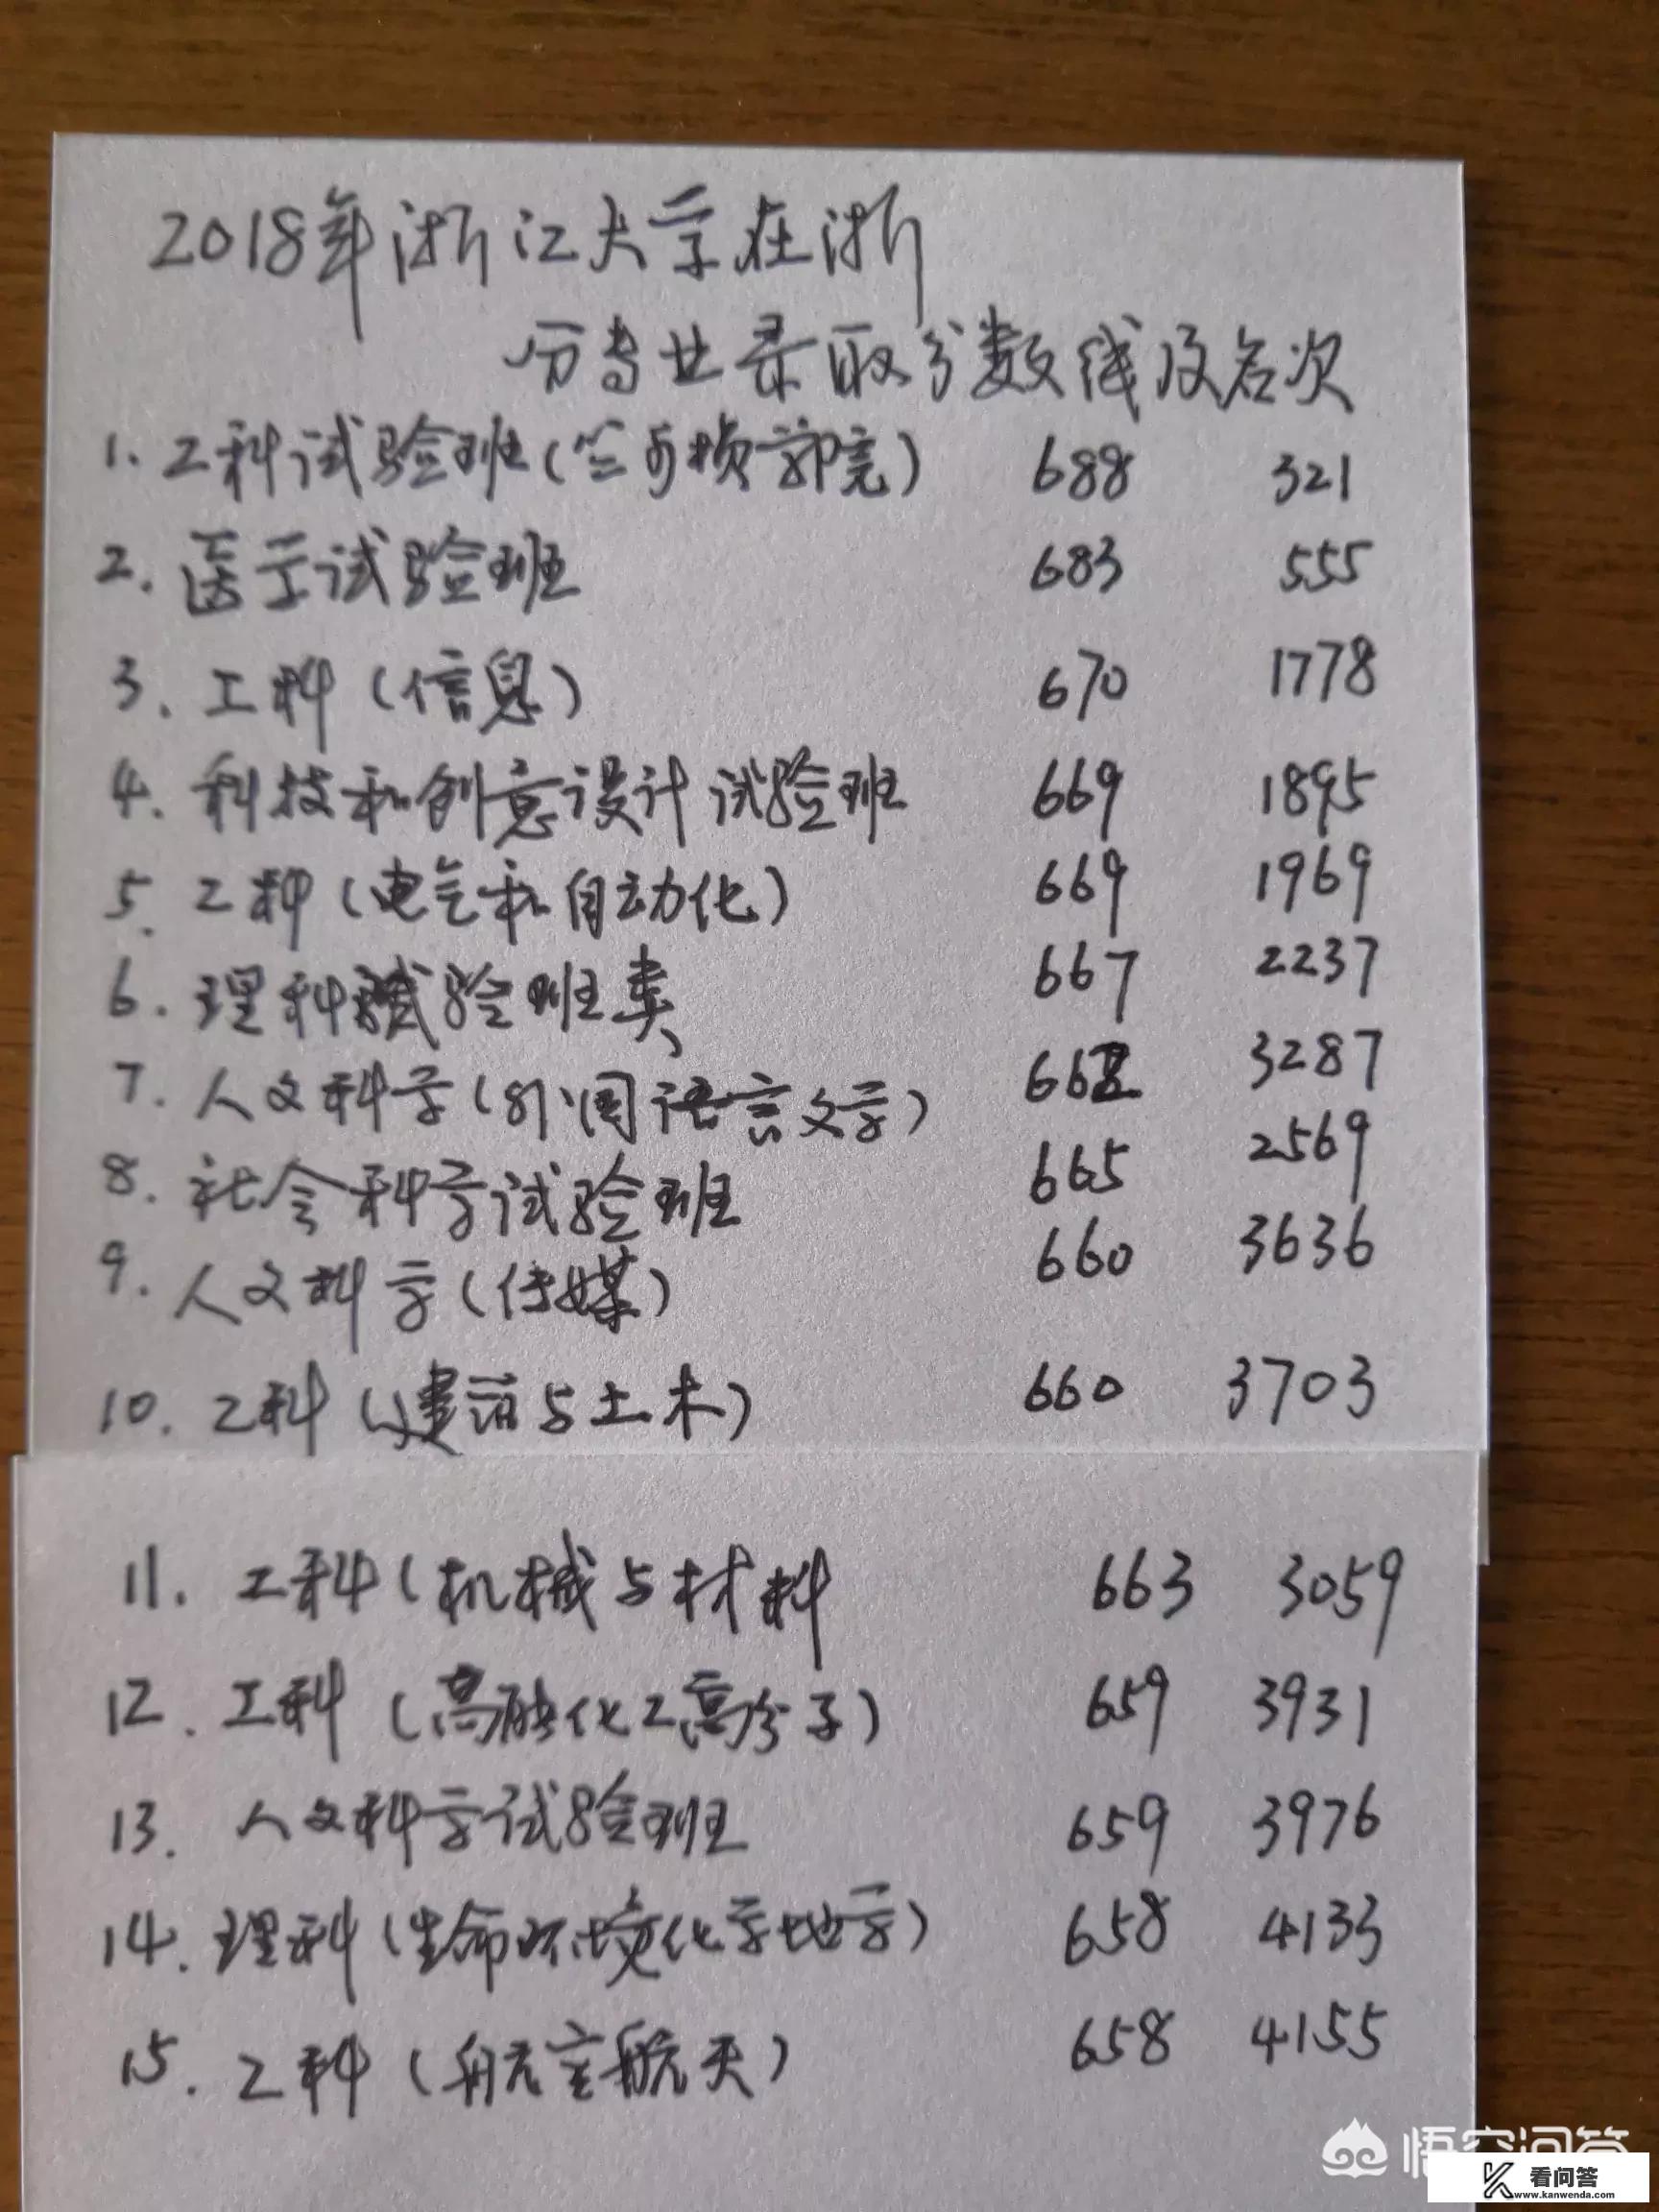 2018年浙江大学在浙
分专业录取分数线及名次
1. 工科试验班(竺可桢学院) 688 321
2. 医学试验班 683 555
3. 工科(信息) 670 1778
4. 科技和创意设计试验班 669 1895
5. 工科(电气和自动化) 669 1969
6. 理科试验班类 667 2237
7. 人文科学(外国语言文学) 662 3287
8. 社会科学试验班 665 2569
9. 人文科学(传媒) 660 3636
10. 工科(建筑与土木) 660 3703
11. 工科(机械与材料 663 3059
12. 工科(高能化工高分子) 659 3931
13. 人文科学试验班 659 3976
14. 理科(生命环境化学地学) 658 4133
15. 工科(航空航天) 658 4155
悟空问答
看问答
www.kanwenda.com